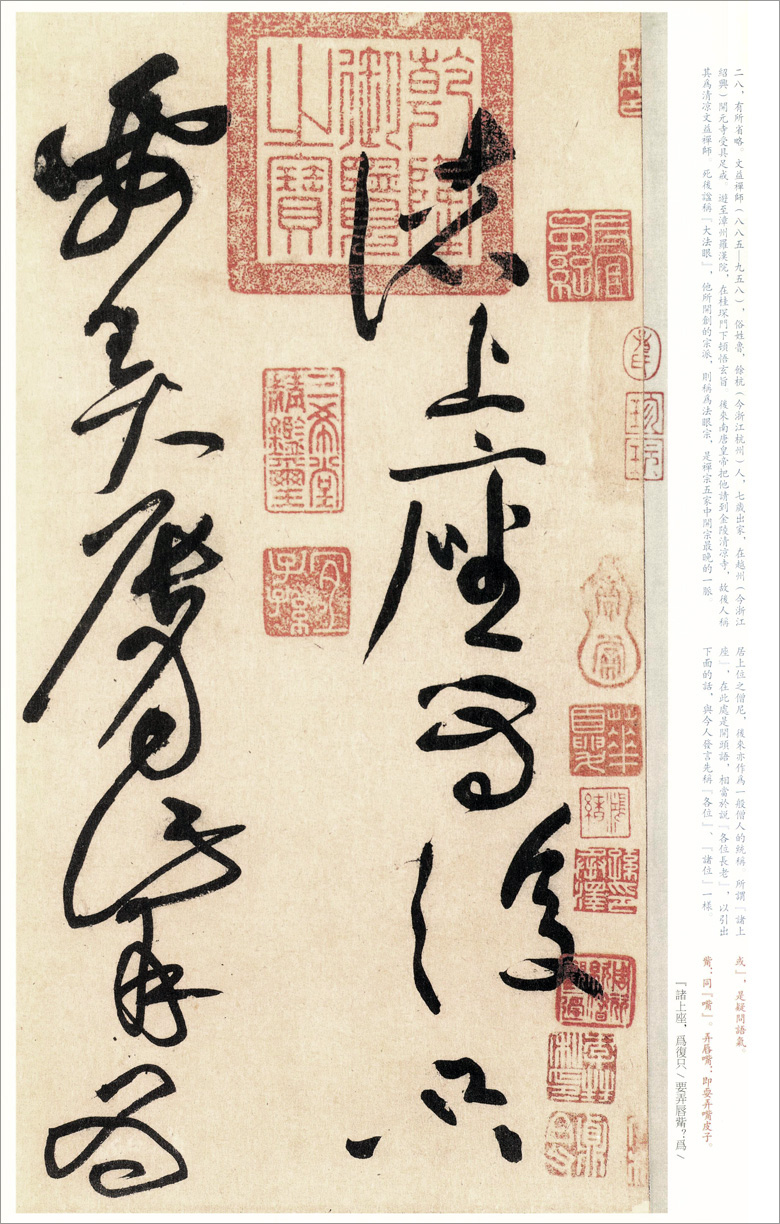 二八，有所省略。文益禪師（八八五—九五八），俗姓魯，餘杭（今浙江杭州）人，七歲出家，在越州（今浙江
紹興）開元寺受具足戒。遊至漳州羅漢院，在桂琛門下頓悟玄旨，後來南唐皇帝把他請到金陵清凉寺，故後人稱
其爲清凉文益禪師。死後謚稱「大法眼」，他所開創的宗派，則稱爲法眼宗，是禪宗五家中開宗最晚的一脈。
居上位之僧尼，後來亦作爲一般僧人的統稱。所謂「諸上
座」，在此處是開頭語，相當於説「各位長老」，以引出
下面的話，與今人發言先稱「各位」、「諸位」一樣。
或」，是疑問語氣。
觜：同「嘴」。弄唇嘴：即耍弄嘴皮子。
「諸上座，爲復只/要弄唇觜？爲/
諸上座爲復只
要弄唇觜爲
乾隆御覽之寶
三希堂精鑑璽
宜子孫